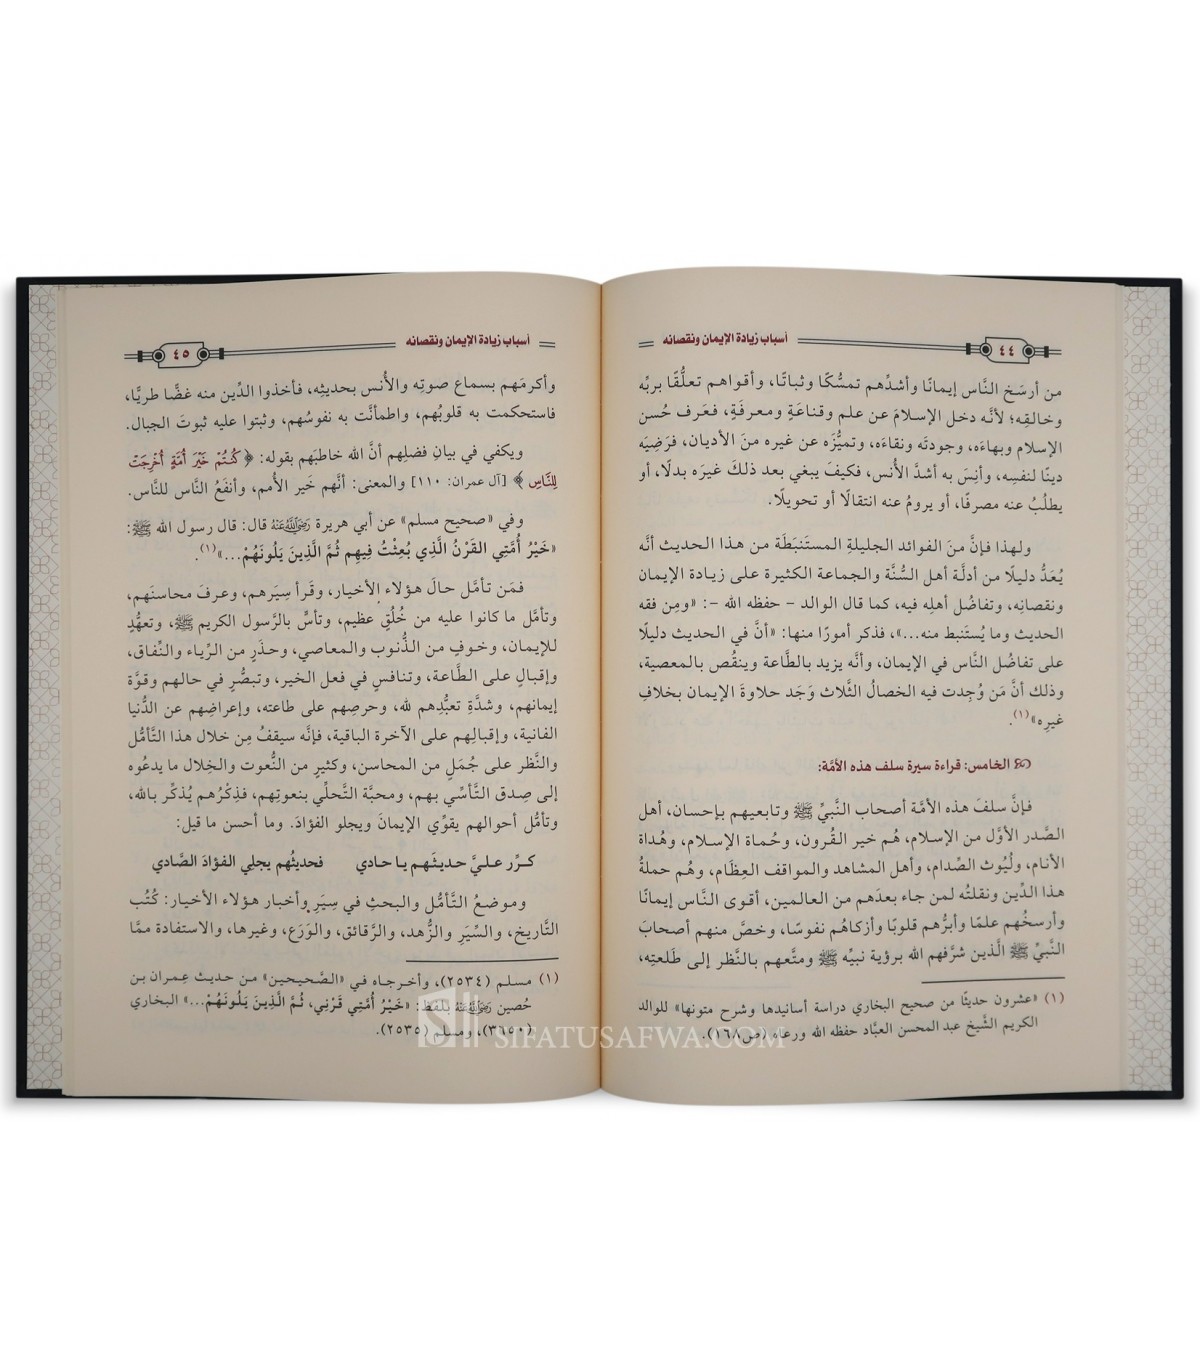 أسباب زيادة الإيمان ونقصانه
٤٤
من أرسَخ النَّاس إيمانًا وأشدِّهم تمسُّكًا وثباتًا، وأقواهم تعلُّقًا بربِّه
وخالقِه؛ لأنَّه دخل الإسلامَ عن علم وقناعَةٍ ومعرفَةٍ، فعَرف حُسن
الإسلام وبهاءَه، وجودتَه ونقاءَه، وتميُّزَه عن غيره منَ الأديان، فرَضِيَه
دينًا لنفسِه، وأنِسَ به أشدَّ الأُنس، فكيفَ يبغي بعد ذلكَ غيرَه بدلًا، أو
يطلُبُ عنه مصرفًا، أو يرومُ عنه انتقالًا أو تحويلًا.
ولهذا فإنَّ منَ الفوائد الجليلةِ المستَنبَطَة من هذا الحديث أنَّه
يُعَدُّ دليلًا من أدلَّة أهل السُّنَّة والجماعة الكثيرة على زيادة الإيمان
ونقصانِه، وتفاضُل أهلِه فيه، كما قال الوالد - حفظه الله -: «ومِن فقه
الحديث وما يُستَنبط منه...»، فذكر أمورًا منها: «أنَّ في الحديث دليلًا
على تفاضُل النَّاس في الإيمان، وأنَّه يزيد بالطَّاعة وينقُص بالمعصية،
وذلك أنَّ مَن وُجِدت فيه الخصالُ الثَّلاث وَجَد حلاوةَ الإيمان بخلافِ
غيرِه»(١).
الخامس: قراءة سيرة سلف هذه الأمَّة:
فإنَّ سلفَ هذه الأمَّة أصحاب النَّبيِّ ﷺ وتابعيهم بإحسان، أهل
الصَّدر الأوَّل من الإسلام، هُم خير القُرون، وحُماة الإسلام، وهُداة
الأنام، ولُيُوث الصِّدام، وأهل المشاهد والمواقف العِظَام، وهُم حملةُ
هذا الدِّين ونقلتُه لمن جاء بعدَهم من العالمين، أقوى النَّاس إيمانًا
وأرسخُهم علمًا وأبرُّهم قلوبًا وأزكاهُم نفوسًا، وخصَّ منهم أصحابَ
النَّبيِّ ﷺ الَّذين شرَّفهم الله برؤية نبيِّه ﷺ ومتَّعهم بالنَّظر إلى طَلعتِه،
(١) «عشرون حديثًا من صحيح البخاري دراسة أسانيدها وشرح متونها» للوالد
الكريم الشَّيخ عبد المحسن العبَّاد حفظه الله ورعاه (ص١٦٨).
أسباب زيادة الإيمان ونقصانه
٤٥
وأكرمَهم بسماع صوتِه والأُنس بحديثِه، فأخذوا الدِّين منه غضًّا طريًّا،
فاستحكمت به قلوبُهم، واطمأنَّت به نفوسُهم، وثبتوا عليه ثبوتَ الجبال.
ويكفي في بيانِ فضلِهم أنَّ الله خاطبَهم بقوله: ﴿ كُنتُمْ خَيْرَ أُمَّةٍ أُخْرِجَتْ
لِلنَّاسِ ﴾ [آل عمران: ١١٠] والمعنى: أنَّهم خَير الأُمم، وأنفَعُ النَّاس للنَّاس.
وفي «صحيح مسلم» عن أبي هريرة رَضِيَاللَّهُعَنْهُ قال: قال رسول الله ﷺ:
«خَيْرُ أُمَّتِي القَرْنُ الَّذِي بُعِثْتُ فِيهِم ثُمَّ الَّذِينَ يَلُونَهُمْ...»(١).
فمَن تأمَّل حالَ هؤلاء الأخيار، وقَرأ سِيَرهم، وعرفَ محاسنَهم،
وتأمَّل ما كانوا عليه من خُلُقٍ عظيم، وتأسٍّ بالرَّسول الكريم ﷺ، وتعهُّدٍ
للإيمان، وخوفٍ من الذُّنوب والمعاصي، وحذَرٍ من الرِّياء والنِّفاق،
وإقبالٍ على الطَّاعة، وتنافسٍ في فعل الخير، وتبصُّرٍ في حالهم وقوَّة
إيمانهم، وشدَّةِ تعبُّدِهم لله، وحرصِهم على طاعته، وإعراضِهم عن الدُّنيا
الفانية، وإقبالِهم على الآخرة الباقية، فإنَّه سيقفُ مِن خلال هذا التَّأمُّل
والنَّظر على جُمَلٍ من المحاسن، وكثيرٍ من النُّعوت والخِلال ما يدعُوه
إلى صِدق التَّأسِّي بهم، ومحبَّة التَّحلِّي بنعوتِهم، فذِكرُهم يُذكِّر بالله،
وتأمُّل أحوالهم يقوِّي الإيمانَ ويجلو الفؤادَ. وما أحسن ما قيل:
كرِّر عليَّ حديثَهم يا حادي فحديثُهم يجلِي الفؤادَ الصَّادي
وموضعُ التَّأمُّل والبحثِ في سِيَرِ وأخبار هؤلاء الأخيار: كُتُب
التَّاريخ، والسِّيَرِ والزُّهد، والرَّقائق، والوَرَع، وغيرها، والاستفادة ممَّا
(١) مسلم (٢٥٣٤)، وأخرجاه في «الصَّحيحين» من حديث عِمران بن
حُصين رَضِيَاللَّهُعَنْهُ بلفظ: «خَيْرُ أُمَّتِي قَرْنِي، ثُمَّ الَّذِينَ يَلُونَهُمْ...» البخاري
(٣٦٥٠)، ومسلم (٢٥٣٥).
SIFATUSAFWA.COM